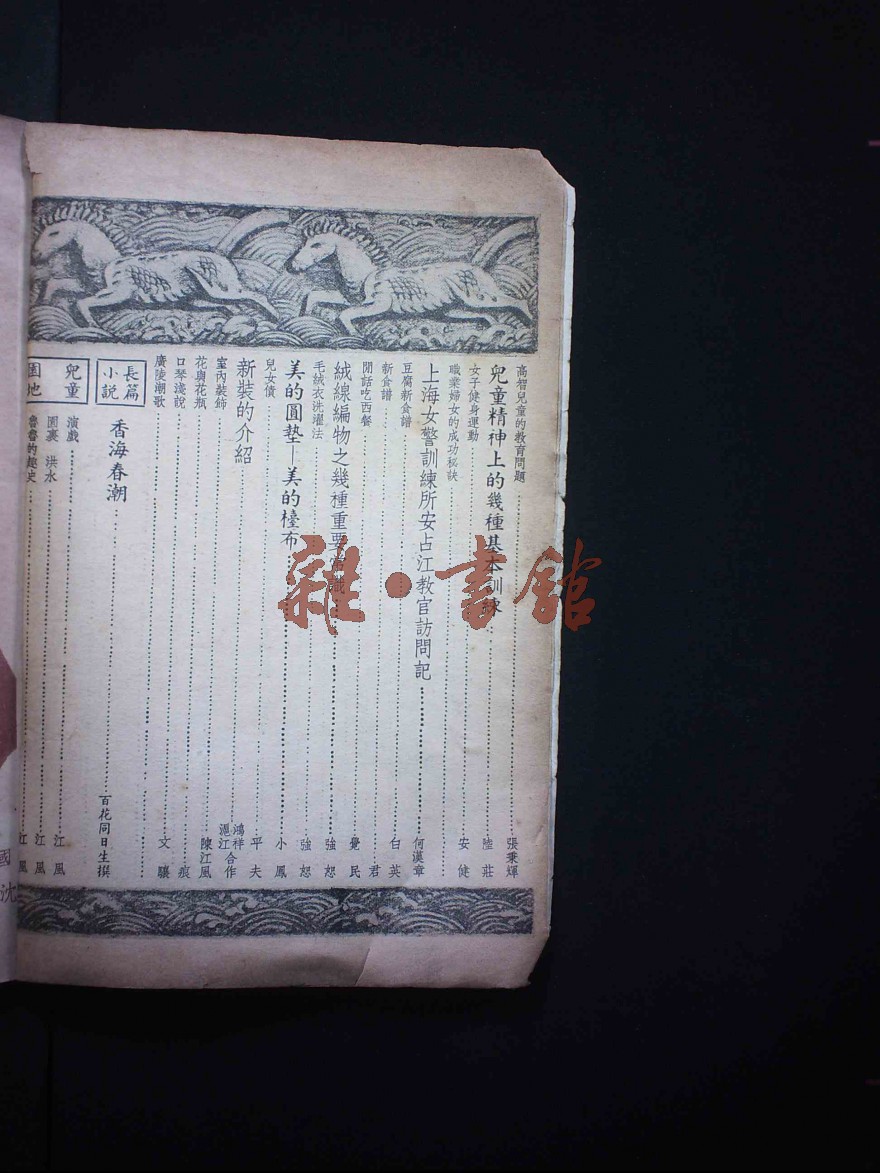 高智兒童的教育問題 張秉輝
兒童精神上的幾種基本訓練 陸莊
女子健身運動 安健
職業婦女的成功秘訣
上海女警訓練所安占江教官訪問記 何漢章
豆腐新食譜 白英
新食譜 君
閒話吃西餐 覺民
絨線編物之幾種重要常識 強恕
毛絨衣洗濯法 強恕
美的圓墊—美的檯布 小鳳
兒女債 平夫
新裝的介紹 鴻祥滬江合作
室內裝飾 陳江風
花與花瓶 痕
口琴淺說 文驤
廣陵潮歌
長篇小說
香海春潮 百花同日生撰
兒童園地
演戲 江風
園裏洪水 江風
魯魯的趣史 江風
國
沈
雜·書館